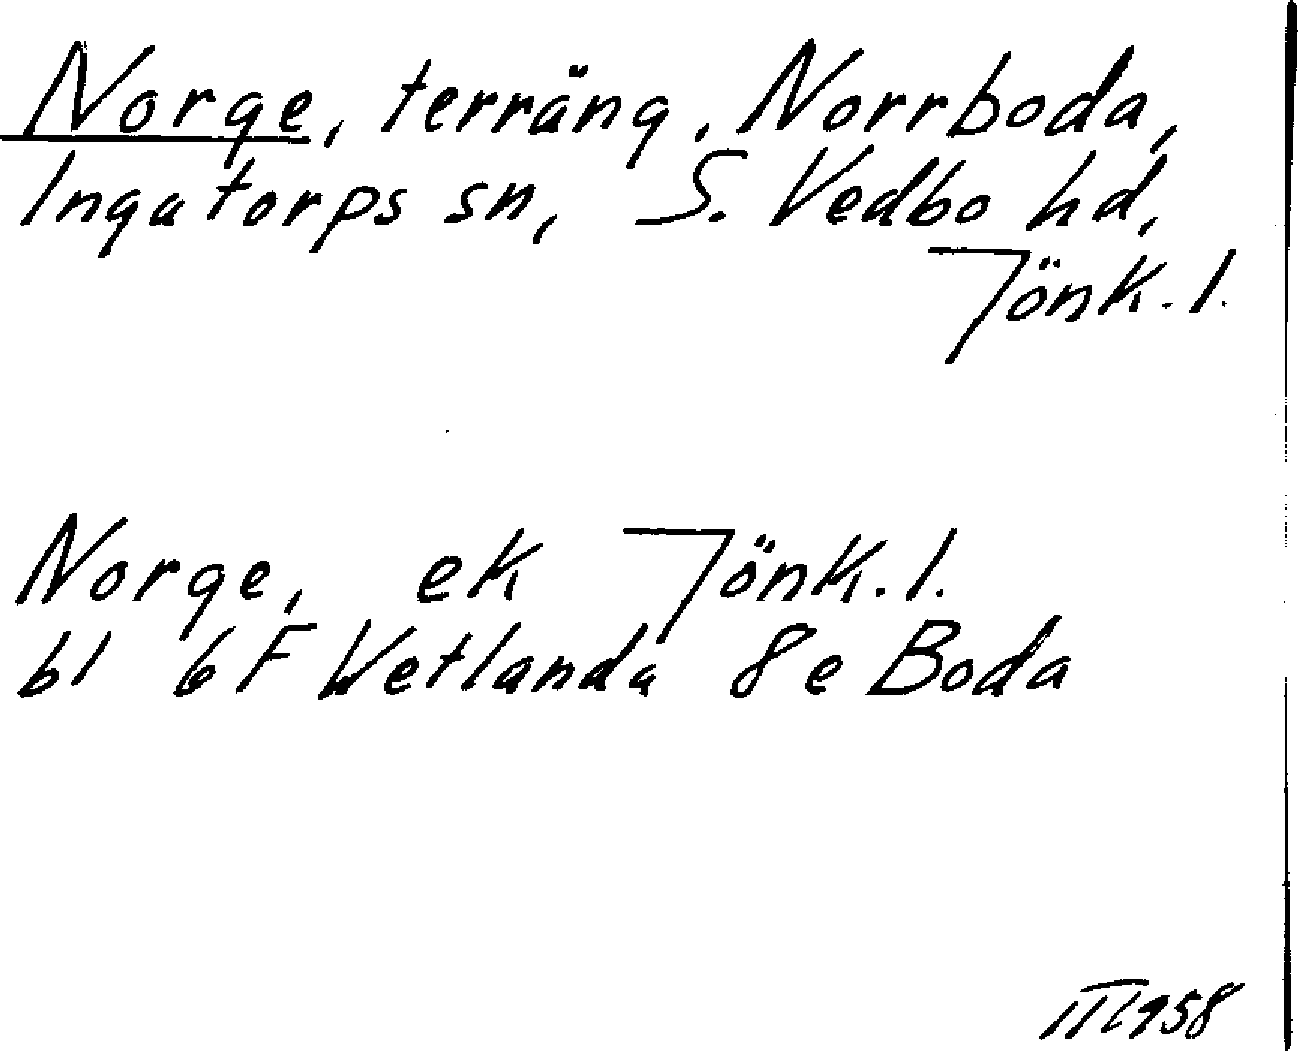 Norge, terräng, Norrboda,
Ingatorps sn, S. Vedbo hd,
Jönk. l.
Norge, ek Jönk. l.
bl 6 F Vetlanda 8e Boda
1958